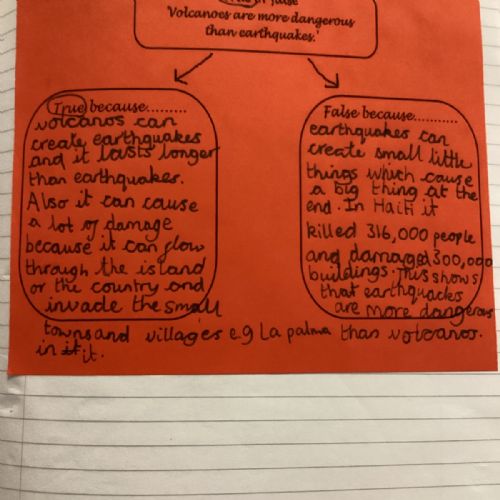 True or False
'Volcanoes are more dangerous
than earthquakes.'
True because.........
volcanos can
create earthquakes
and it lasts longer
than earthquakes.
Also it can cause
a lot of damage
because it can flow
through the island
or the country and
invade the small
towns and villages e.g La palma
in it.
False because.........
earthquakes can
create small little
things which cause
a big thing at the
end. In Haiti it
killed 316,000 people
and damaged 300,000
buildings. This shows
that earthquacks
are more dangerous
than volcanos.